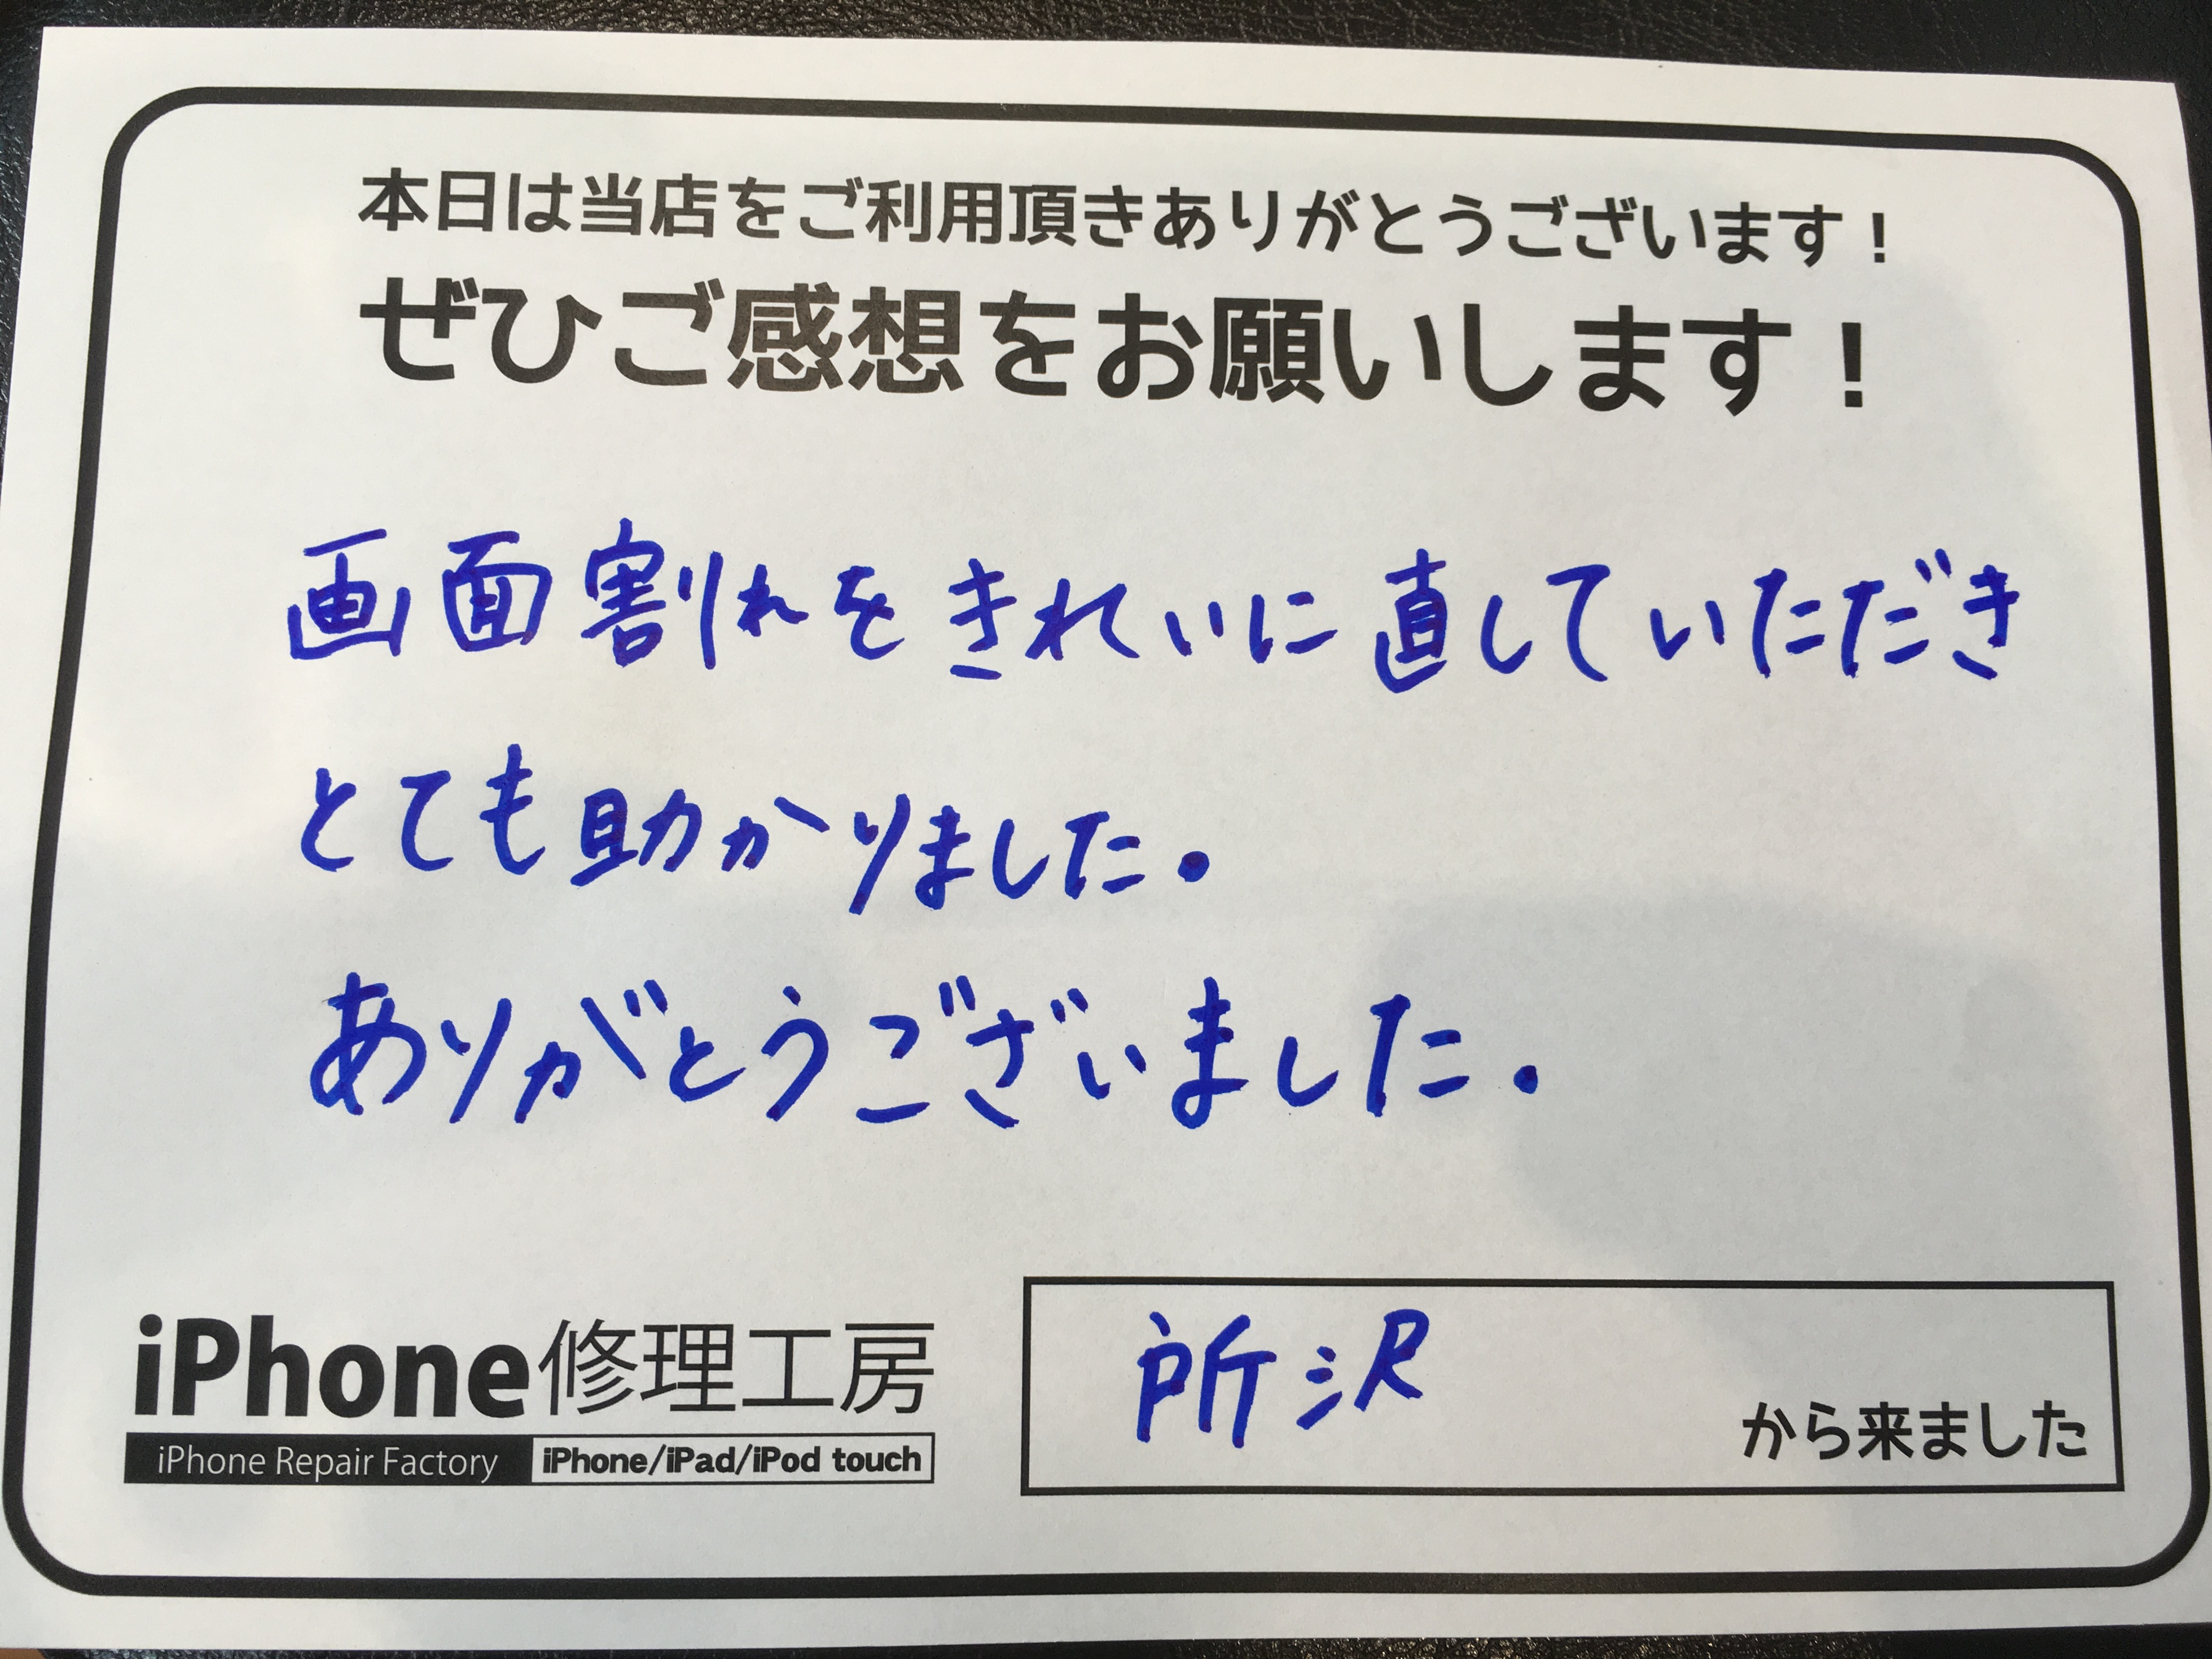 本日は当店をご利用頂きありがとうございます！
ぜひご感想をお願いします！
画面割れをきれいに直していただき
とても助かりました.
ありがとうございました.
iPhone修理工房
iPhone Repair Factory iPhone/iPad/iPod touch
所沢
から来ました